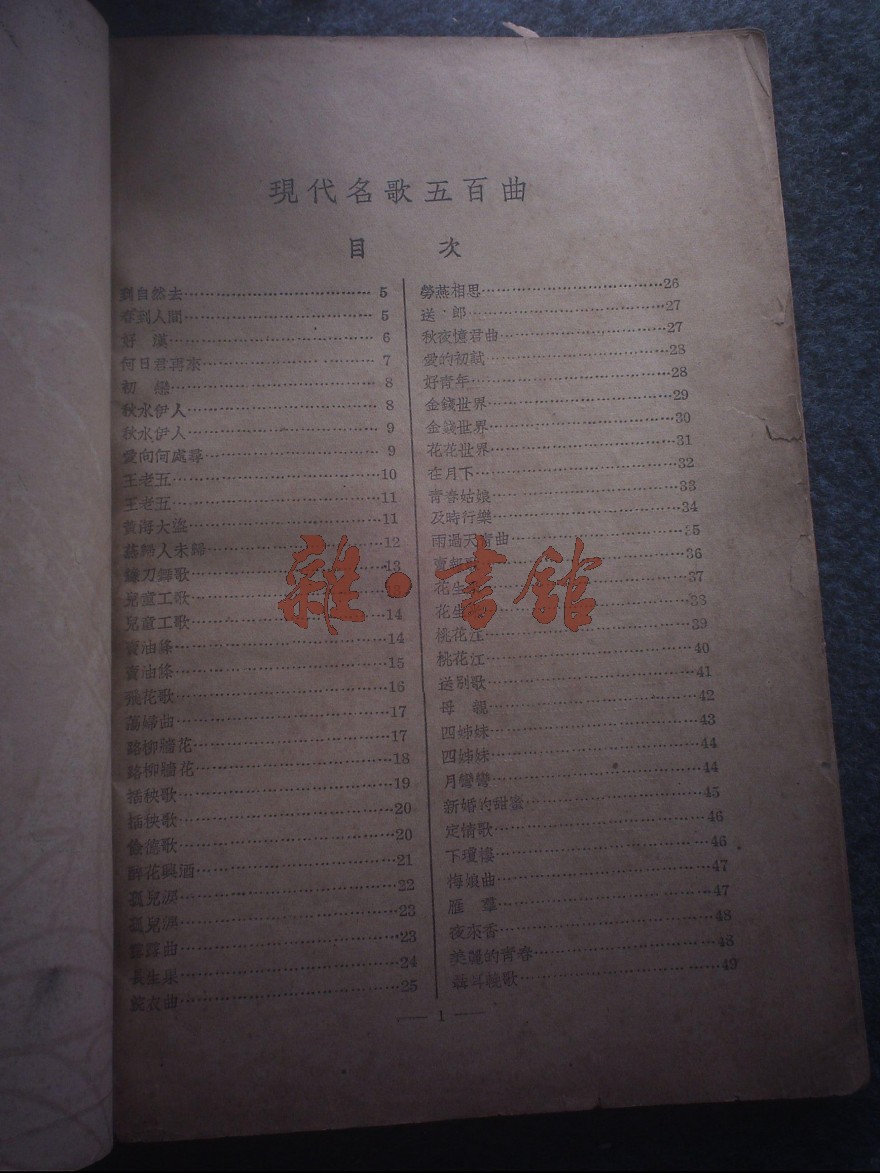 現代名歌五百曲
目 次
到自然去 5
春到人間 5
好 漢 6
何日君再來 7
初 戀 8
秋水伊人 8
秋水伊人 9
愛向何處尋 9
王老五 10
王老五 11
黃海大盜 11
燕歸人未歸 12
鐮刀舞歌 13
兒童工歌
兒童工歌 14
賣油條 14
賣油條 15
飛花歌 16
蕩婦曲 17
路柳牆花 17
路柳牆花 18
插秧歌 19
插秧歌 20
儉德歌 20
醉花與酒 21
孤兒淚 22
孤兒淚 23
曲 23
長生果 24
浣衣曲 25
勞燕相思 26
送 郎 27
秋夜憶君曲 27
愛的初試 28
好青年 28
金錢世界 29
金錢世界 30
花花世界 31
在月下 32
青春姑娘 33
及時行樂 34
雨過天青曲 35
賣報 36
花生 37
花生 38
桃花江 39
桃花江 40
送別歌 41
母 親 42
四姊妹 43
四姊妹 44
月彎彎 44
新婚的甜蜜 45
定情歌 46
下瓊樓 46
梅娘曲 47
雁 羣 47
夜來香 48
美麗的青春 48
聶耳輓歌 49
— 1 —
雜·書館